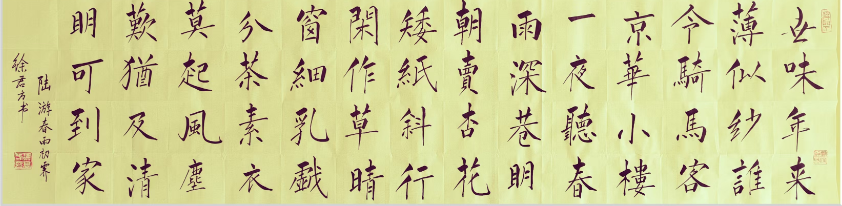 世味年来
薄似紗誰
令騎馬客
京華小樓
一夜聽春
雨深巷明
朝賣杏花
矮紙斜行
閑作草晴
窗細乳戲
分茶素衣
莫起風塵
歎猶及清
明可到家
陸游春雨初霽
徐君方书